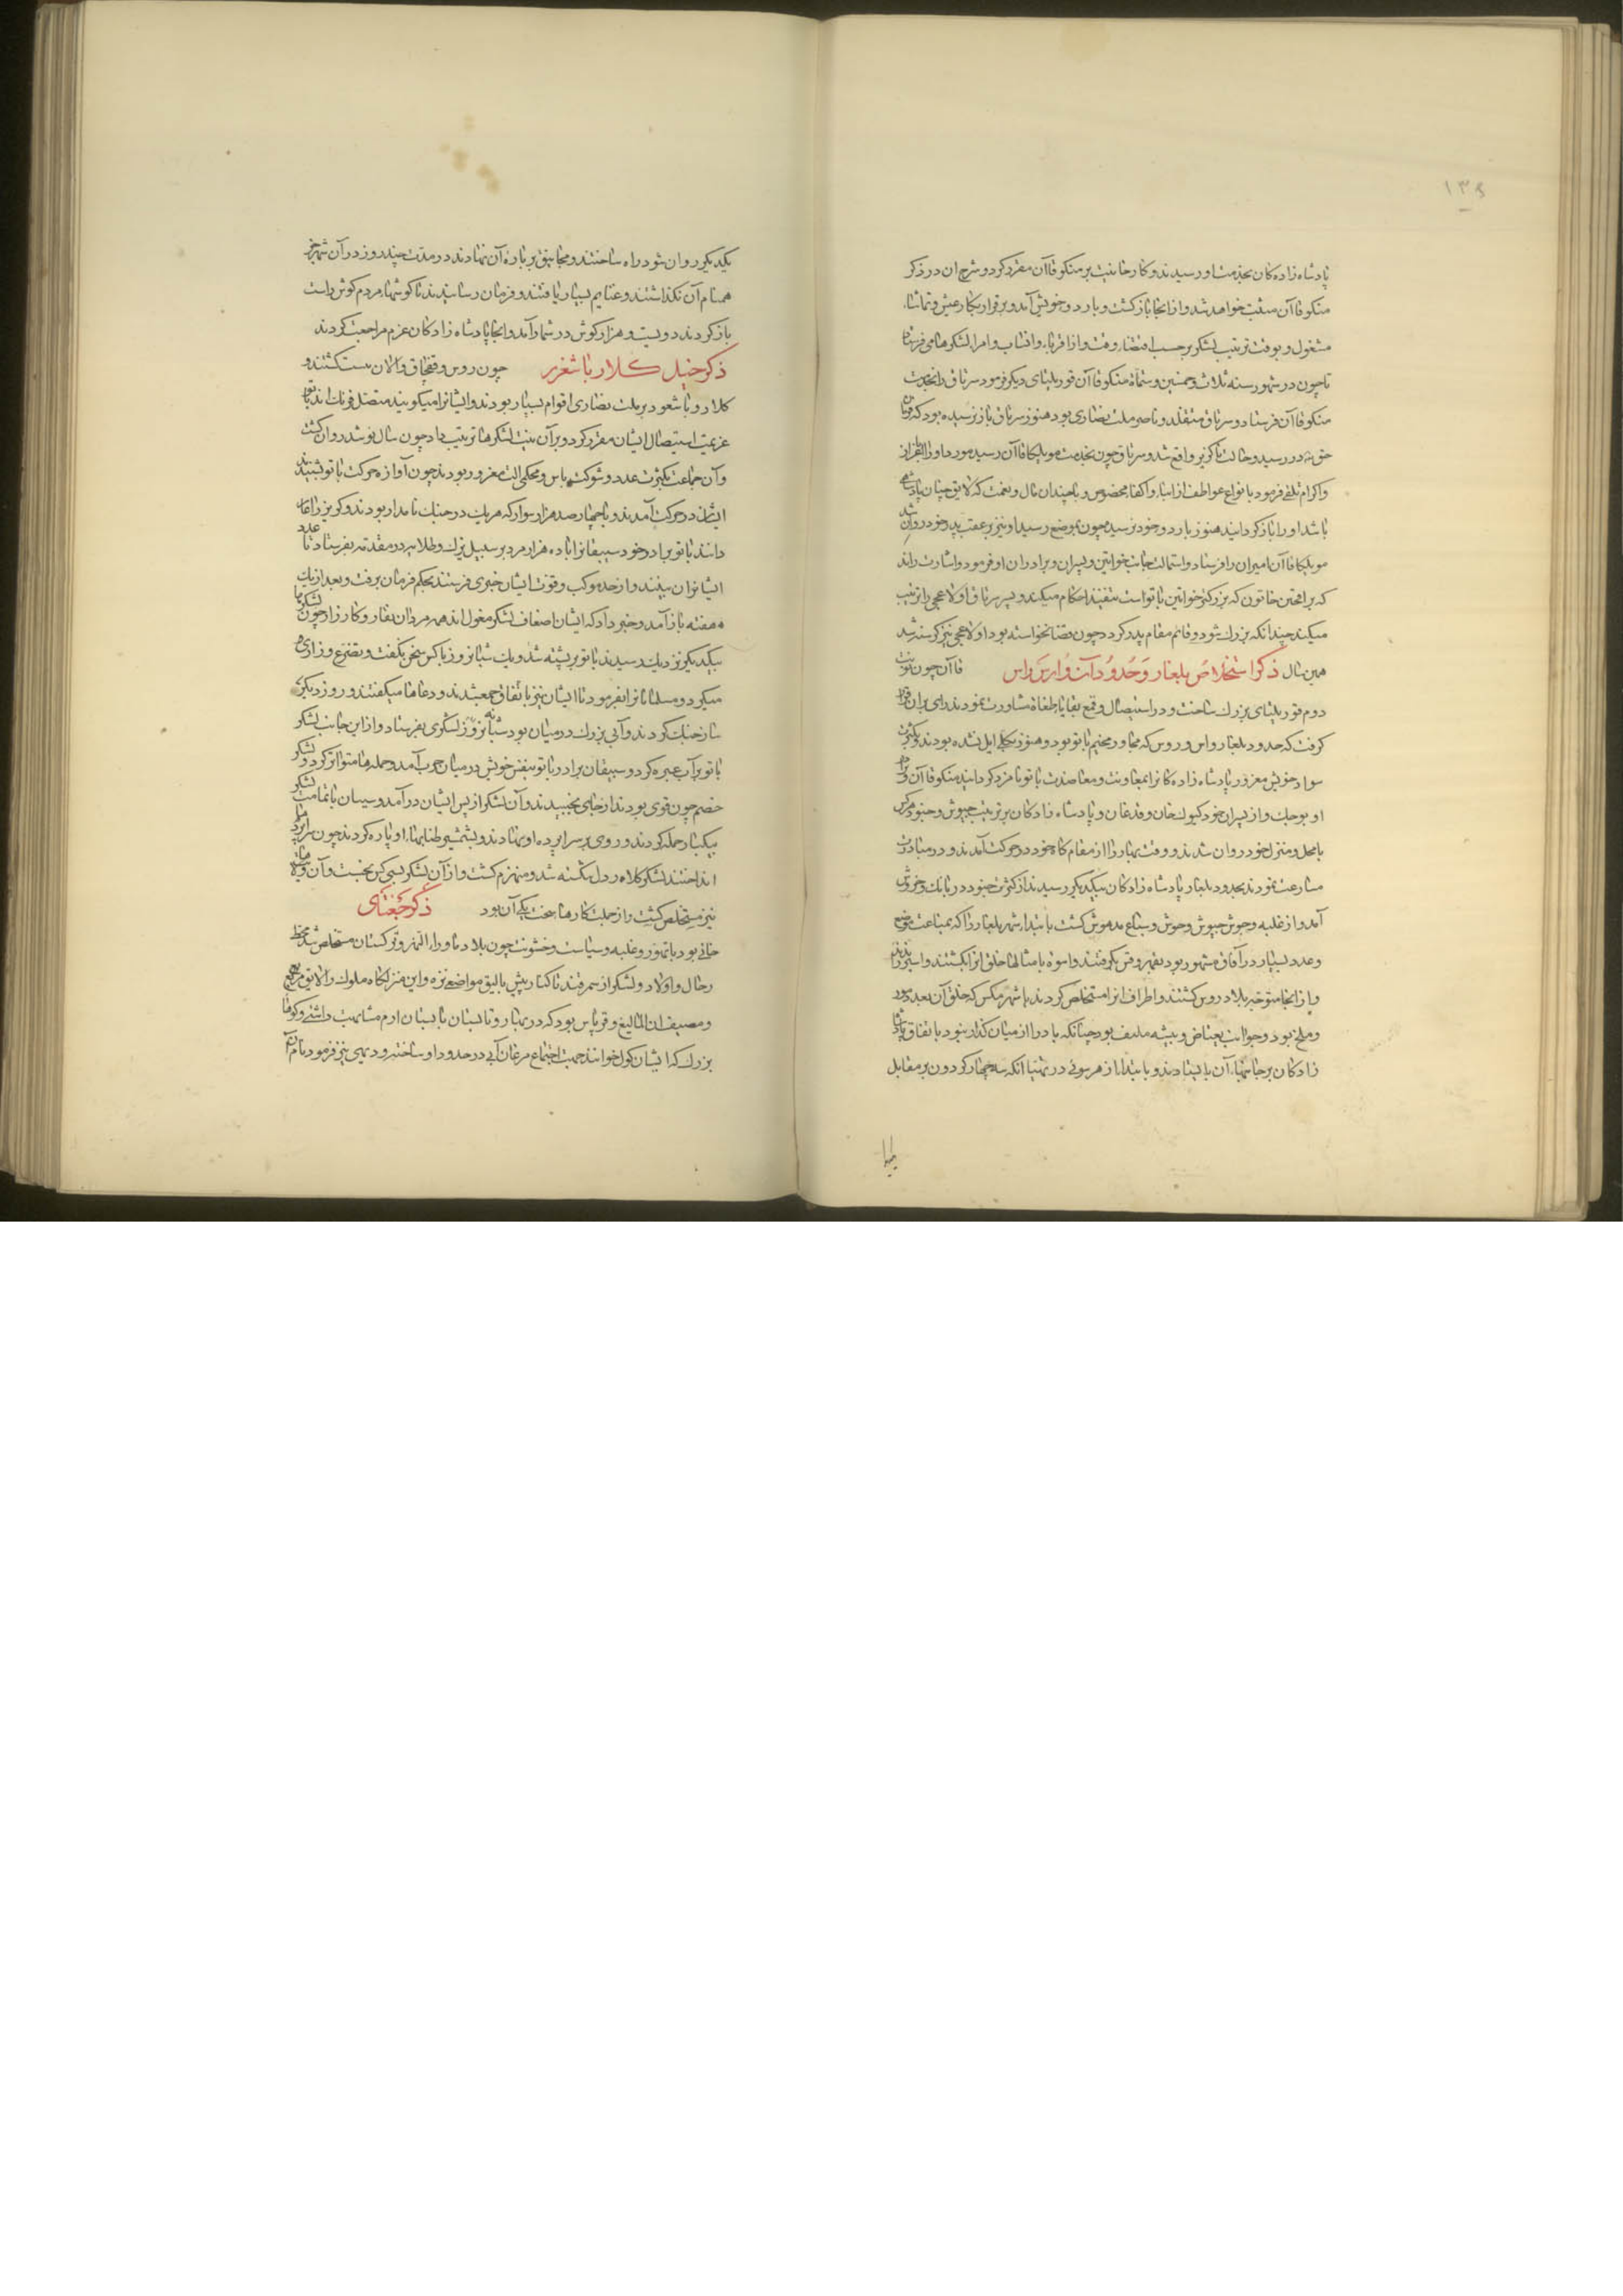 ۱۳۶
پادشاه زادگان بخدمت او رسیدند و کار خانیت بر منکو قاآن مقرر کرد و شرح آن در ذکر
منکو قاآن مثبت خواهد شد و از انجا باز کشت و باردو خویش آمد و برقرار بکار عیش و تماشا
مشغول و بوقت ترتیب لشکر بر حسب اقتضاء وقت و از اقربا و انساب و امرا لشکرها می فرستاد
تا چون در شهور سنه ثلاث و خمسین و ستمأة منکو قاآن قوریلتای دیکر فرمود سرتاق را بخدمت
منکو قاآن فرستاد و سرتاق متقلد و ناصر ملت نصاری بود هنوز سرتاق باز نرسیده بود که فرمان
حق در رسید و حالت ناکزیر واقع شد و سرتاق چون بخدمت مونککا قاآن رسید مورد او را باعزاز
و اکرام تلقی فرمود بانواع عواطف از ابناء و اکفا مخصوص و با چندان مال و نعمت که لایق چنان پادشاهی
باشد او را باز کردانید هنوز باردو خود نرسید چون بموضع رسید او نیز بر عقب پدر خود روان شد
مونککا قاآن امیران را فرستاد و استمالت جانب خواتین و پسران و برادران او فرمود و اشارت راند
که براقچین خاتون که بزرکتر خواتین باتو است تنفیذ احکام میکند و پسر سرتاق اولاغچی را تربیت
میکند چندانکه بزرک شود و قائم مقام پدر کردد چون قضا نخواسته بود اولاغچی نیز کذشته شد
همین سال ذکر استخلاص بلغار و حدود آن و ارس و اس قاآن چون نوبت
دوم قوریلتای بزرک ساخت و در استیصال و قمع بقایا طغاة مشاورت نمودند رای بران قرار
کرفت که حدود بلغار و اس و روس که مجاور مخیم باتو بود و هنوز بکلی ایل نشده بودند و بکثرت
سواد خویش مغرور پادشاه زادکانرا بمعاونت و معاضدت باتو نامزد کردانید منکو قاآن و برادر
او بوجک و از پسران خود کیوک خان و قدغان و پادشاه زادکان بر ترتیب جیوش و جنود هرکس
با محل و منزل خود روان شدند و وقت بهار را از مقام کاه خود در حرکت آمدند و در مبادرت
مسارعت نمودند بحدود بلغار پادشاه زادکان بیکدیکر رسیدند از کثرت جنود در بانک و خروش
آمد و از غلبه و جوش جیوش وحوش و سباع مدهوش کشت بابتدا شهر بلغار را که بمناعت موضع
و عدد بسیار در آفاق مشهور بود بقهر و قسر بکرفتند و اسوه بامثالها خلق انرا بکشتند و اسیر راندند
و از انجا متوجه بلاد روس کشتند و اطراف انرا مستخلص کردند با شهر مکس که خلق آن بعدد مور
و ملخ بود و جوانب بغیاض و بیشه ملتف بود چنانکه باد را از میان کذار نبود باتفاق پادشاه
زادکان بر جانبها آن بایستادند و بابتدا از هر سوئی در تهنا انکه سه چهار کردون بر مقابل
یکدیکر روان شود راه ساختند و مجانیق بر باره آن نهادند در مدت چند روز در آن شهر جز
همنام آن نکذاشتند و غنایم بسیار یافتند و فرمان رسانیدند تا کوشها مردم کوش راست
باز کردند دویست و هزار کوش در شمار آمد و انجا پادشاه زادکان عزم مراجعت کردند
ذکر خیل کلار باشغرر چون روس و قفچاق و الان نیست کشتند و
کلار و باشعود بر ملت نصاری اقوام بسیار بودند و ایشانرا میکویند متصل فرنک اند باتو
عزیمت استیصال ایشان مقرر کرد و بر آن نیت لشکرها ترتیب داد چون سال نو شد روان کشت
و آن جماعت بکثرت عدد و شوکت باس و محکمی الت مغرور بودند چون آوازه حرکت باتو بشنیدند
ایشان در حرکت آمدند و با چهار صد هزار سوار که هر یک در جنک نامدار بودند و کریز را عار
دانند باتو برادر خود سیبقانرا با ده هزار مرد بر سبیل یزک و طلایه در مقدمه بفرستاد تا عدد
ایشانرا بینند و از حد موکب و قوت ایشان خبری فرستند بحکم فرمان برفت و بعد از یک
هفته باز آمد و خبر داد که ایشان اضعاف لشکر مغول اند همه مردان نقار و کارزار چون لشکرها
بیکدیکر نزدیک رسیدند باتو بر پشته شد و یک شبانروز با کس سخن نکفت و تضرع و زاری
میکرد و مسلمانانرا بفرمود تا ایشان نیز باتفاق جمع شدند و دعاها میکفتند و روز دیکر
ساز جنک کردند و آبی بزرک در میان بود شبانه روز لشکری بفرستاد و از این جانب لشکر
باتو بر آب عبره کرد و سیبقان برادر باتو بنفس خویش در میان حرب آمد و حمله ها متواتر کرد و لشکر
خصم چون قوی بودند از جای نجنبیدند و آن لشکر از پس ایشان در آمد و سیبان با تمامت لشکر
بیکبار حمله کردند و روی بر سراپرده او نهادند و بشمشیر طنابها او پاره کردند چون سراپردها
انداختند لشکر کلار دل شکسته شد و منهزم کشت و از آن لشکر بسی کس نجست و آن ولایتها
نیز مستخلص کشت و از جملت کارها سخت یکی آن بود ذکر جغتای
خانی بود باتهور و غلبه و سیاست و خشونت چون بلاد ماوراء النهر و ترکستان مستخلص شد محط
رحال و اولاد و لشکر از سمرقند تا کنار بیش بالیق مواضع نزه و این منزلکاه ملوک را لایق مربع
و مصیف ان المالیغ و قریاس بود که در بهار و تابستان با بستان ارم مشابهت داشتی و کولها
بزرک که ایشان کول خوانند جهت اجتماع مرغان آبی در حدود او ساخته و دیهی نیز فرمود نام آن